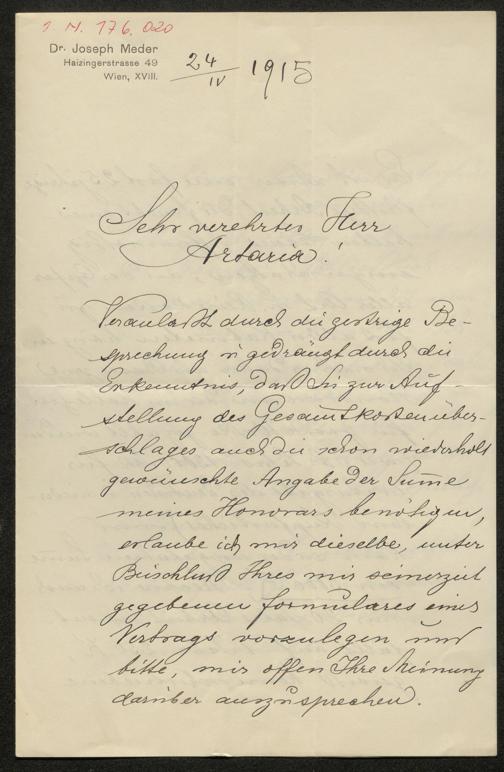 J. N. 176.020
Dr. Joseph Meder
Haizingerstrasse 49
Wien, XVIII.
24/IV 1915
Sehr verehrter Herr
Artaria!
Veranlaßt durch die gestrige Be-
sprechung u gedrängt durch die
Erkenntnis, daß Sie zur Auf-
stellung des Gesamtkostenüber-
schlages auch die schon wiederholt
gewünschte Angabe der Sum̅e
meines Honorars benötigen,
erlaube ich mir dieselbe, unter
Beischluß Ihres mir seinerzeit
gegebenen Formulares eines
Vertrags vorzulegen und
bitte, mir offen Ihre Meinung
darüber auszusprechen.